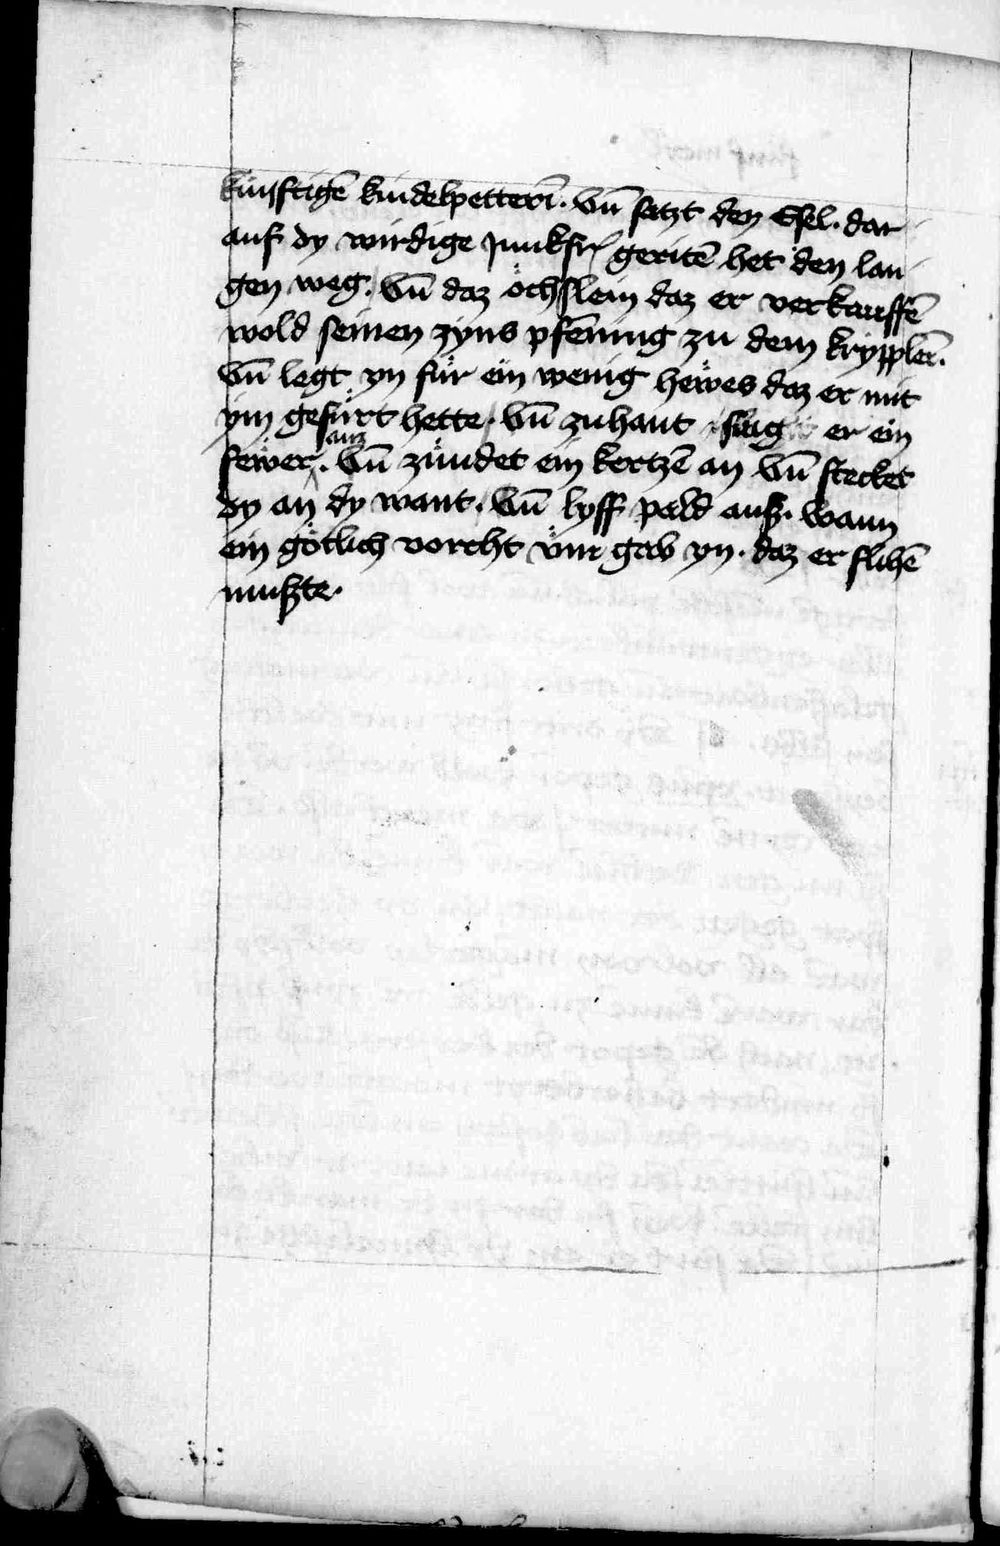 künftigē kindelpetterī. Vn̄ satzt den Esel. dar
auf dy wirdige Junkfr̄ geritē het den lan
gen weg. Vn̄ daz öchslein daz er verkauffē
wold seinen zyns pfennig zu dem krypplein.
Vn̄ legt yn für ein wenig hewes daz er mit
ym gefürt hette. Vn̄ zuhant slug er ein
fewer auz. Vn̄ zündet ein kertzē an Vn̄ stecket
dy an dy want. Vn̄ lyff pald auß. Wann
ein götlich vorcht gab yn. daz er flihē
mußte.